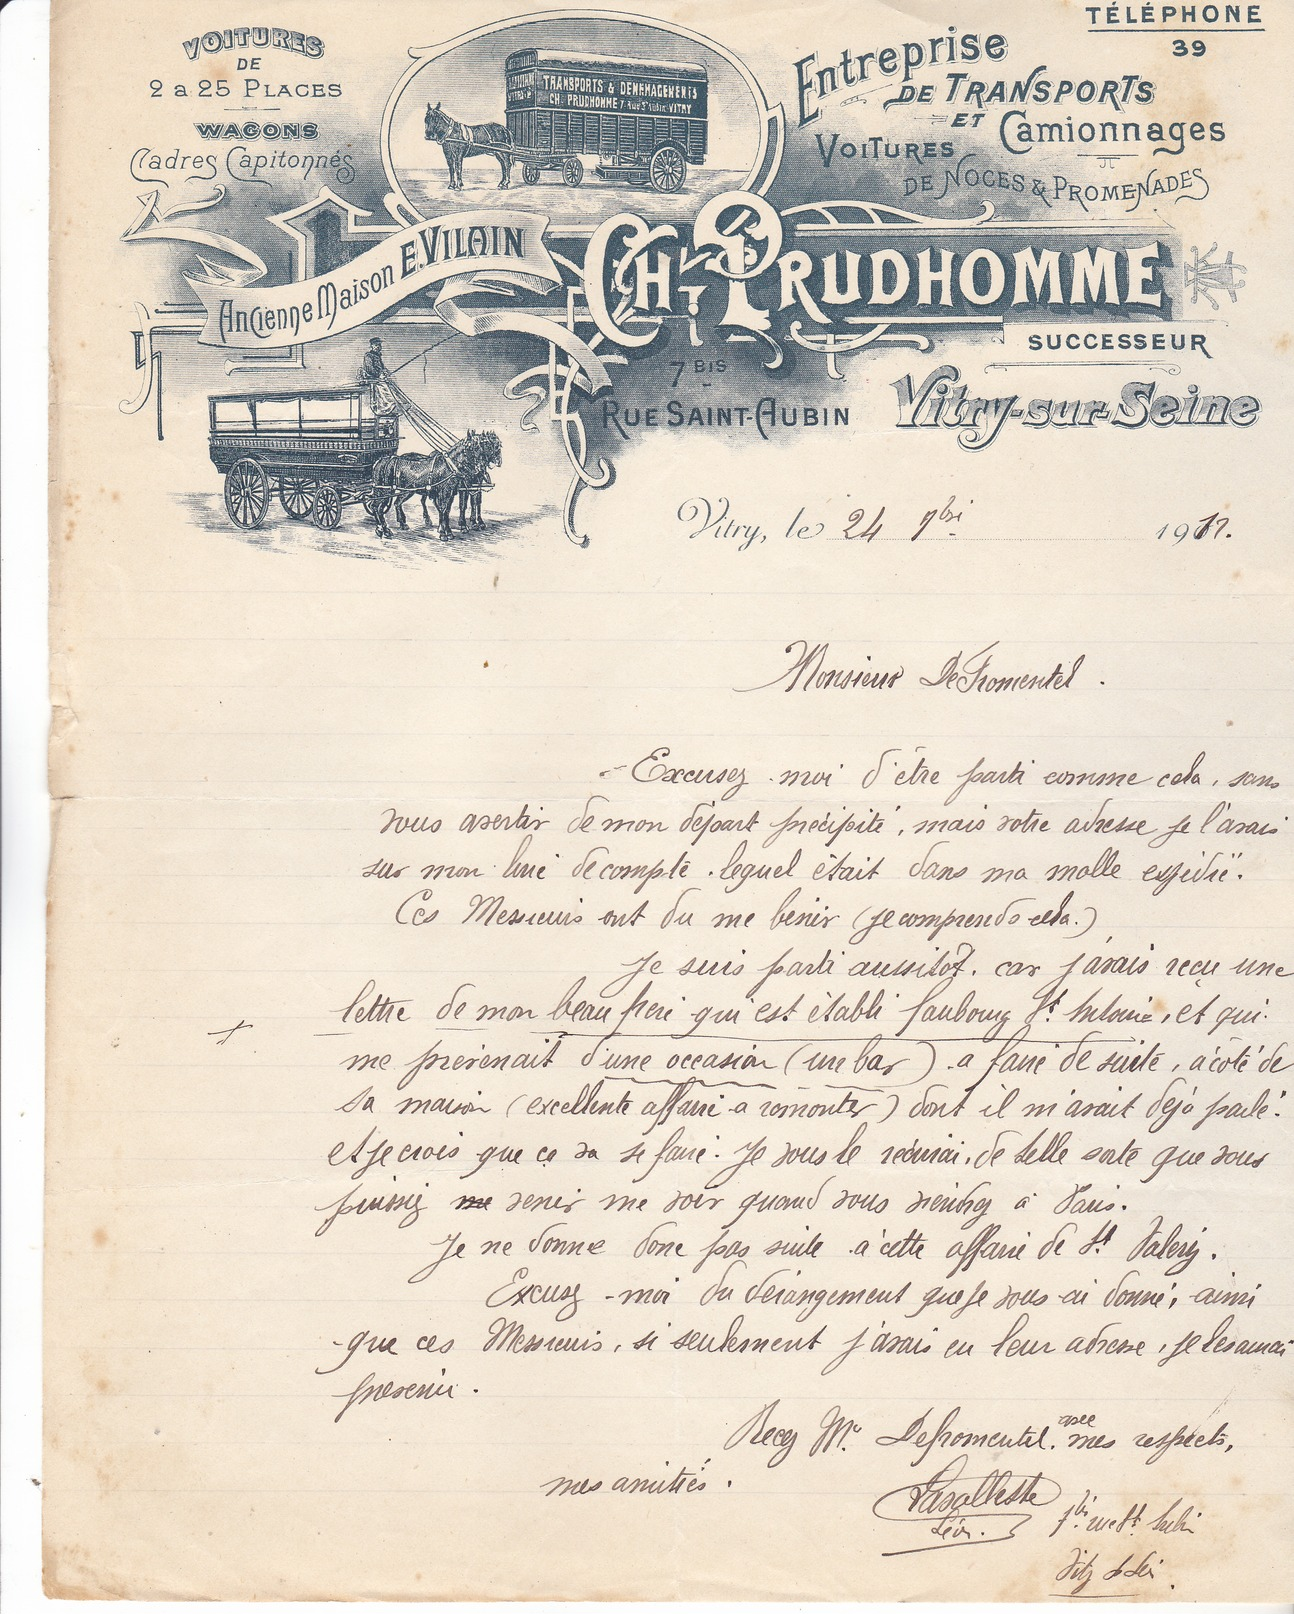 TÉLÉPHONE
39
VOITURES
DE
2 a 25 PLACES
WAGONS
Cadres Capitonnés
TRANSPORTS & DEMENAGEMENTS
CH. PRUDHOMME 7 Rue St Aubin VITRY
Entreprise
DE TRANSPORTS
ET Camionnages
VOITURES
DE NOCES & PROMENADES
Ancienne Maison E. VILAIN
CH. PRUDHOMME
SUCCESSEUR
7 BIS
RUE SAINT-AUBIN
Vitry-sur-Seine
Vitry, le 24 7bre 1917.
Monsieur DeFromentel.
Excusez-moi d'être parti comme cela, sans
vous avertir de mon départ précipité, mais votre adresse je l'avais
sur mon livre de compte, lequel était dans ma malle expédiée.
Ces Messieurs ont du me bénir (je comprends cela.)
Je suis parti aussitôt, car j'avais reçu une
lettre de mon beau frère qui est établi faubourg St. Antoine, et qui
me prévenait d'une occasion (un bar) a faire de suite, à côté de
sa maison (excellente affaire a remonter) dont il m'avait déjà parlé.
et je crois que ça va se faire. Je vous le récrirai, de telle sorte que vous
puissiez me venir me voir quand vous viendrez à Paris.
Je ne donne donc pas suite à cette affaire de St Valery.
Excusez-moi du dérangement que je vous ai donné, ainsi
que ces Messieurs, si seulement j'avais eu leur adresse, je les aurais
prévenir.
Recez Mr. Defromentel, avec mes respects,
mes amitiés.
Léon.
7bis rue St Aubin
Vitry s Sei